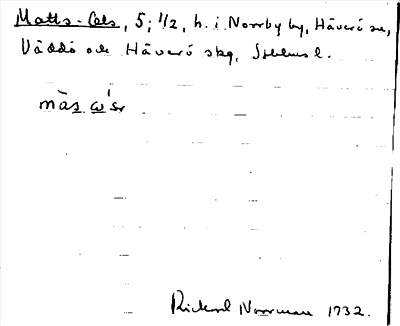 Matts-Ols, 5; 1/2, h. i Norrby by, Häverö sn,
Väddö och Häverö skg, Sthlms l.
màs
Rickard Norrman 1932.